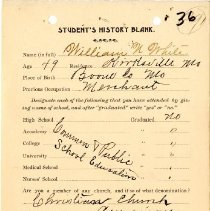 36
STUDENT'S HISTORY BLANK.
Name (in full) William N. White
Age 49 Residence Kirksville Mo
Place of Birth Boone Co Mo
Previous Occupation Merchant
Designate each of the following that you have attended by giving name of school, and after "graduated" write "yes" or "no."
High School Graduated no
Academy " "
College Common & Public " "
University School Education " "
Medical School " "
Nurses' School " "
Are you a member of any church, and if so what denomination?
Christian Church